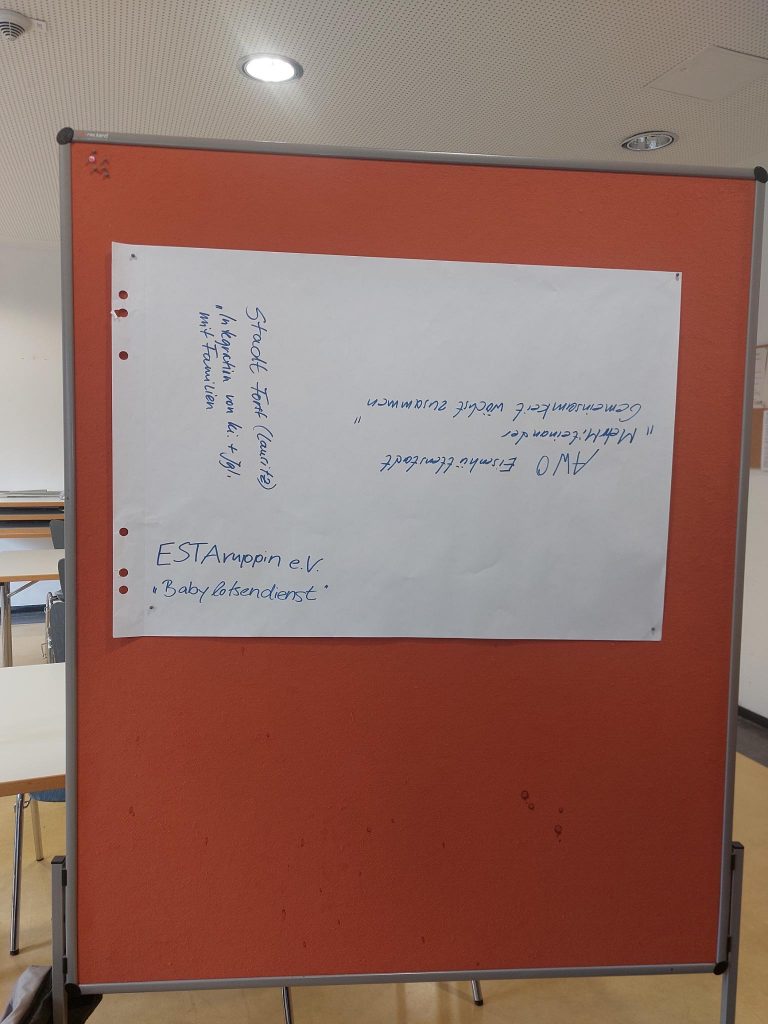 Stadt Forst (Lausitz)
"Integration von Ki. + Jgl.
mit Familien
AWO Eisenhüttenstadt
" Miteinander
Gemeinsamkeit wächst zusammen "
ESTAruppin e.V.
"Babylotsendienst"